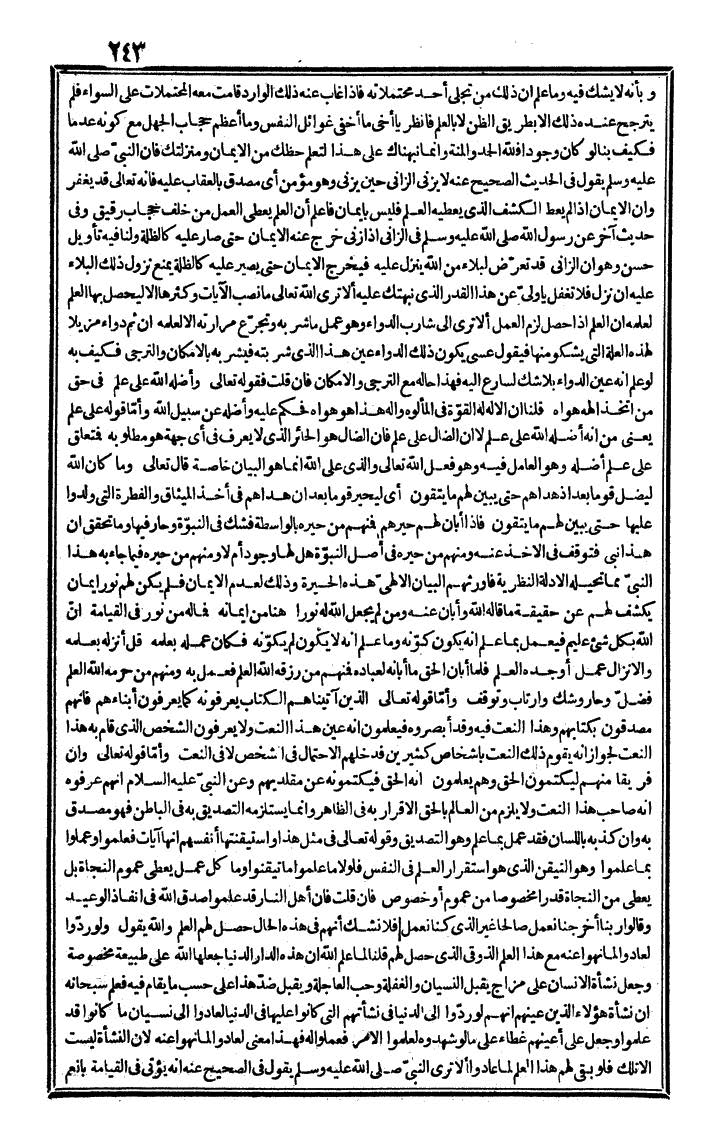 ٢٤٣
و بأنه لا يشك فيه وما علم ان ذلك من تجلى أحد محتملاته فاذا غاب عنه ذلك الوارد قامت معه المحتملات على السواء فلم
يترجح عنده ذلك الا بطريق الظن لا بالعلم فانظر يا أخى ما أخفى غوائل النفس وما أعظم حجاب الجهل مع كونه عدما
فكيف بنا لو كان وجودا فلله الحمد والمنة وانما نبهناك على هذا لتعلم حظك من الايمان ومنزلتك فان النبى صلى الله
عليه وسلم يقول فى الحديث الصحيح عنه لا يزنى الزانى حين يزنى وهو مؤمن أى مصدق بالعقاب عليه فانه تعالى قد يغفر
وان الايمان اذا لم يعط الكشف الذى يعطيه العلم فليس بايمان فاعلم أن العلم يعطى العمل من خلف حجاب رقيق وفى
حديث آخر عن رسول الله صلى الله عليه وسلم فى الزانى اذا زنى خرج عنه الايمان حتى صار عليه كالظلة ولنا فيه تأويل
حسن وهو ان الزانى قد تعرّض لبلاء من الله ينزل عليه فيخرج الايمان حتى يصير عليه كالظلة يمنع نزول ذلك البلاء
عليه ان نزل فلا تغفل يا ولىّ عن هذا القدر الذى نبهتك عليه ألا ترى الله تعالى ما نصب الآيات وكثرها الا ليحصل بها العلم
لعلمه ان العلم اذا حصل لزم العمل ألا ترى الى شارب الدواء وهو عمل ما شربه وتجرّع مرارته الا لعلمه ان ثم دواء مزيلا
لهذه العلة التى يشكو منها فيقول عسى يكون ذلك الدواء عين هذا الذى شربته فيشربه بالامكان والترجى فكيف به
لو علم انه عين الدواء بلا شك لسارع اليه فهذا حاله مع الترجى والامكان فان قلت فقوله تعالى وأضله الله على علم فى حق
من اتخذ الهه هواه قلنا ان الاله له القوّة فى المألوه واله هذا هو هواه فحكم عليه وأضله عن سبيل الله وأمّا قوله على علم
يعنى من انه أضله الله على علم لا ان الضال على علم فان الضال هو الحائر الذى لا يعرف فى أى جهة هو مطلوبه فتعلق
على علم أضله وهو العامل فيه وهو فعل الله تعالى والذى على الله انما هو البيان خاصة قال تعالى وما كان الله
ليضل قوما بعد اذ هداهم حتى يبين لهم ما يتقون أى ليحير قوما بعد ان هداهم فى أخذ الميثاق والفطرة التى ولدوا
عليها حتى يبين لهم ما يتقون فاذا أبان لهم حيرهم فمنهم من حيره بالواسطة فشك فى النبوّة وحار فيها وما تحقق ان
هذا نبى فتوقف فى الاخذ عنه ومنهم من حيره فى أصل النبوّة هل لها وجود أم لا ومنهم من حيره فيما جاء به هذا
النبىّ مما تحيله الادلة النظرية فاورثهم البيان الالهىّ هذه الحيرة وذلك لعدم الايمان فلم يكن لهم نور ايمان
يكشف لهم عن حقيقة ما قاله الله وأبان عنه ومن لم يجعل الله له نورا هنا من ايمانه فماله من نور فى القيامة انّ
الله بكل شئ عليم فيعمل بما علم انه يكون كوّنه وما علم انه لا يكون لم يكوّنه فكان عمله بعلمه قل أنزله بعلمه
والانزال عمل أوجده العلم فلما أبان الحق ما أبانه لعباده فمنهم من رزقه الله العلم فعمل به ومنهم من حرمه الله العلم
فضلّ وحار وشك وارتاب وتوقف وأمّا قوله تعالى الذين آتيناهم الكتاب يعرفونه كما يعرفون أبناءهم فانهم
مصدقون بكتابهم وهذا النعت فيه وقد أبصروه فيعلمون انه عين هذا النعت ولا يعرفون الشخص الذى قام به هذا
النعت لجواز انه يقوم ذلك النعت باشخاص كثيرين فدخلهم الاحتمال فى الشخص لا فى النعت وأمّا قوله تعالى وان
فريقا منهم ليكتمون الحق وهم يعلمون انه الحق فيكتمونه عن مقلديهم وعن النبىّ عليه السلام انهم عرفوه
انه صاحب هذا النعت ولا يلزم من العالم بالحق الاقرار به فى الظاهر وانما يستلزمه التصديق به فى الباطن فهو مصدق
به وان كذبه باللسان فقد عمل بما علم وهو التصديق وقوله تعالى فى مثل هذا واستيقنتها أنفسهم انها آيات فعلموا وعملوا
بما علموا وهو التيقن الذى هو استقرار العلم فى النفس فلولا ما علموا ما تيقنوا وما كل عمل يعطى عموم النجاة بل
يعطى من النجاة قدرا مخصوصا من عموم أو خصوص فان قلت فان أهل النار قد علموا صدق الله فى انفاذ الوعيد
وقالوا ربنا أخرجنا نعمل صالحا غير الذى كنا نعمل فلا نشك أنهم فى هذه الحال حصل لهم العلم والله يقول ولو ردّوا
لعادوا لما نهوا عنه مع هذا العلم الذوقى الذى حصل لهم قلنا لما علم الله ان هذه الدار الدنيا جعلها الله على طبيعة مخصوصة
وجعل نشأة الانسان على مزاج يقبل النسيان والغفلة وحب العاجلة ويقبل ضدّ هذا على حسب ما يقام فيه فعلم سبحانه
ان نشأة هؤلاء الذين عينهم انهم لو ردّوا الى الدنيا فى نشأتهم التى كانوا عليها فى الدنيا لعادوا الى نسيان ما كانوا قد
علموا وجعل على أعينهم غطاء على ما لو شهدوه لعلموا الامر فعملوا له فهذا معنى لعادوا لما نهوا عنه لان النشأة ليست
الا تلك فلو بقى لهم هذا العلم لما عادوا ألا ترى النبىّ صلى الله عليه وسلم يقول فى الصحيح عنه انه يؤتى فى القيامة بانعم